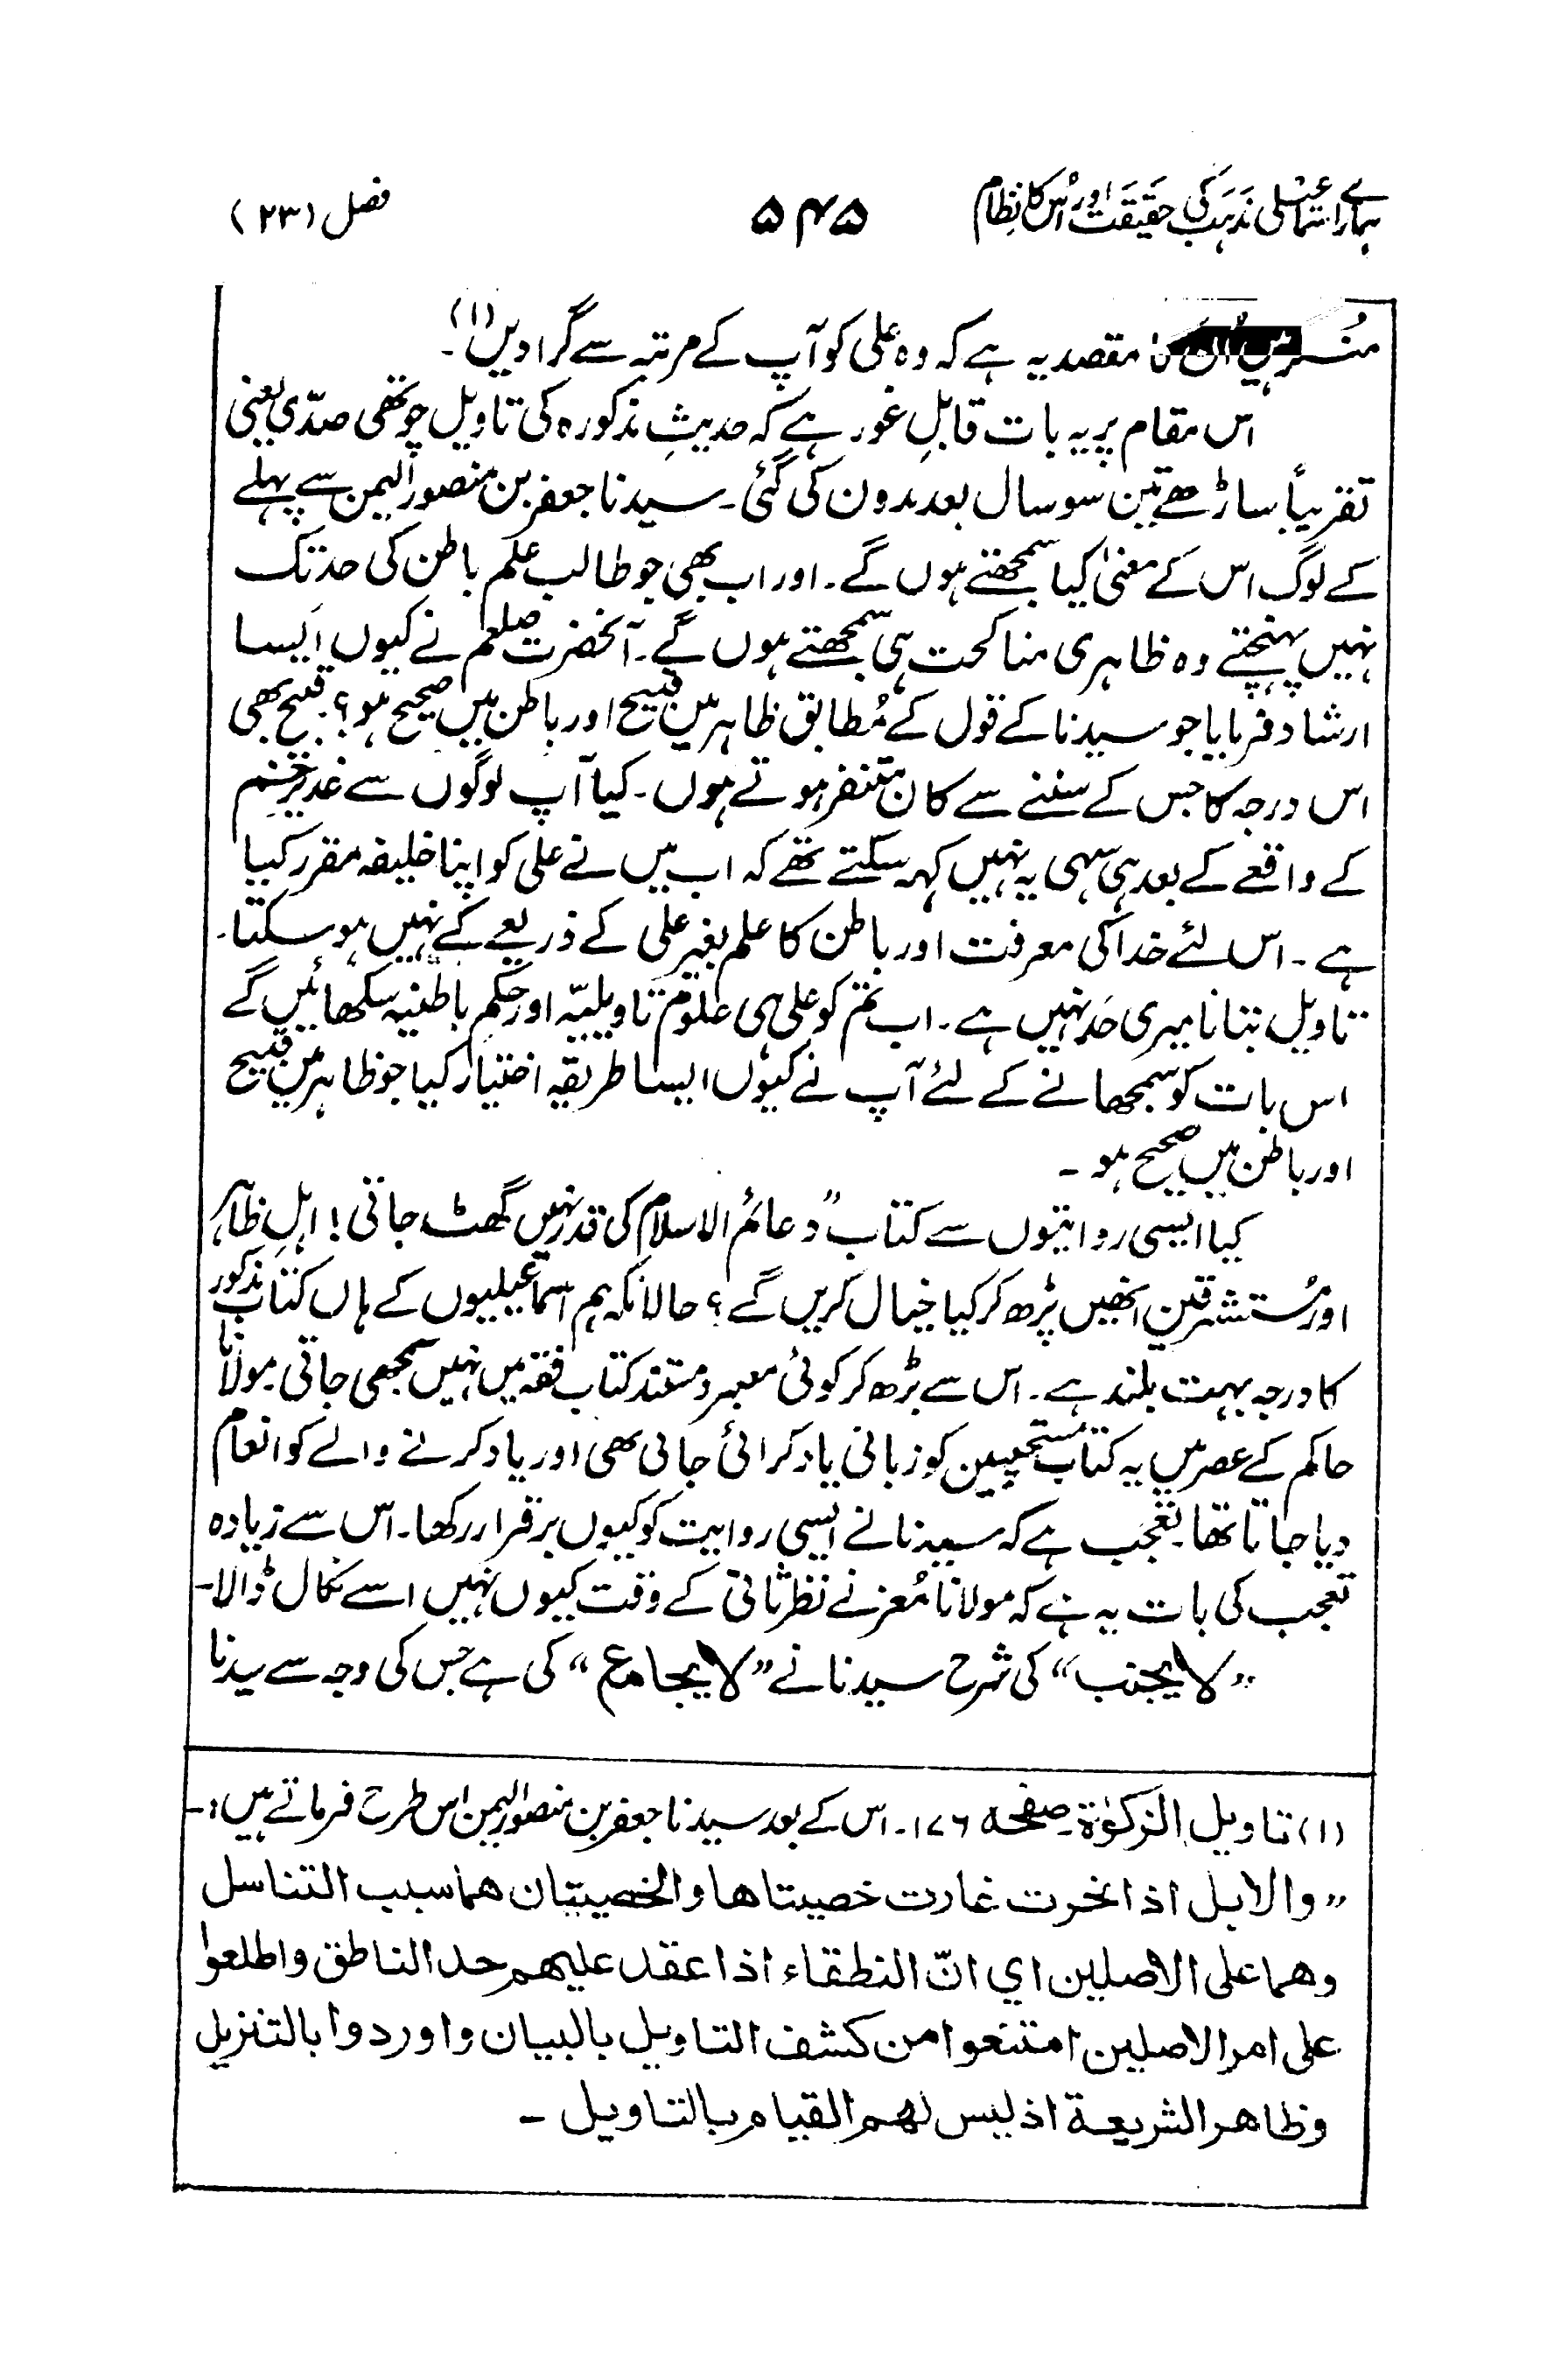 ہمارے اسماعیلی مذہب کی حقیقت اور اُس کا نظام ۵۴۵ فصل (۲۳)
ہیں اُن کا مقصد یہ ہے کہ وہ علی کو آپ کے مرتبہ سے گرا دیں (۱)۔
اس مقام پر یہ بات قابلِ غور ہے کہ حدیثِ مذکورہ کی تاویل چوتھی صدّی یعنی
تقریباً ساڑھے تین سو سال بعد مدون کی گئی۔ سیدنا جعفر بن منصور الیمن سے پہلے
کے لوگ اس کے معنیٰ کیا سمجھتے ہوں گے۔ اور اب بھی جو طالب علم باطن کی حد تک
نہیں پہنچتے وہ ظاہری مناکحت ہی سمجھتے ہوں گے۔ آنحضرت صلعم نے کیوں ایسا
ارشاد فرمایا جو سیدنا کے قول کے مُطابق ظاہر میں قبیح اور باطن میں صحیح ہو؟ قبیح بھی
اس درجہ کا جس کے سننے سے کان متنفر ہوتے ہوں۔ کیا آپ لوگوں سے غدیر خم
کے واقعے کے بعد ہی سہی یہ نہیں کہہ سکتے تھے کہ اب میں نے علی کو اپنا خلیفہ مقرر کیا
ہے۔ اس لئے خدا کی معرفت اور باطن کا علم بغیر علی کے ذریعے کے نہیں ہو سکتا۔
تاویل بتانا میری حَد نہیں ہے۔ اب تم کو علی ہی علومِ تاویلیّہ اور حِکم باطنیہ سکھائیں گے
اس بات کو سمجھانے کے لئے آپ نے کیوں ایسا طریقہ اختیار کیا جو ظاہر میں قبیح
اور باطن میں صحیح ہو ۔
کیا ایسی روایتوں سے کتاب ”دعائم الاسلام کی قدر نہیں گھٹ جاتی! اہلِ ظاہر
اور مُستشرقین انھیں پڑھ کر کیا خیال کریں گے؟ حالانکہ ہم اسماعیلیوں کے ہاں کتاب مذکور
کا درجہ بہت بلند ہے۔ اس سے بڑھ کر کوئی معتبر و مستند کتاب فقہ میں نہیں سمجھی جاتی۔ مولانا
حاکم کے عصر میں یہ کتاب مستجیبین کو زبانی یاد کرائی جاتی تھی اور یاد کرنے والے کو انعام
دیا جاتا تھا۔ تعجب ہے کہ سیدنا نے ایسی روایت کو کیوں برقرار رکھا۔ اس سے زیادہ
تعجب کی بات یہ ہے کہ مولانا مُعز نے نظر ثانی کے وقت کیوں نہیں اسے نکال ڈالا۔
”لا یجنب“ کی شرح سیدنا نے ”لا یجامع“ کی ہے جس کی وجہ سے سیدنا
(۱) تاویل الزکوٰۃ۔ صفحہ ۱۷۶۔ اس کے بعد سیدنا جعفر بن منصور الیمن اس طرح فرماتے ہیں:۔
”والابل اذا نحرت غارت خصیتاها والخصیتان هما سبب التناسل
وهما علی الاصلین ای انّ النطقاء اذا عقد علیهم حد الناطق واطلعوا
علی امر الاصلین امتنعوا من کشف التاویل بالبیان واوردوا بالتنزیل
وظاهر الشریعة اذ لیس لهم القیام بالتاویل ۔